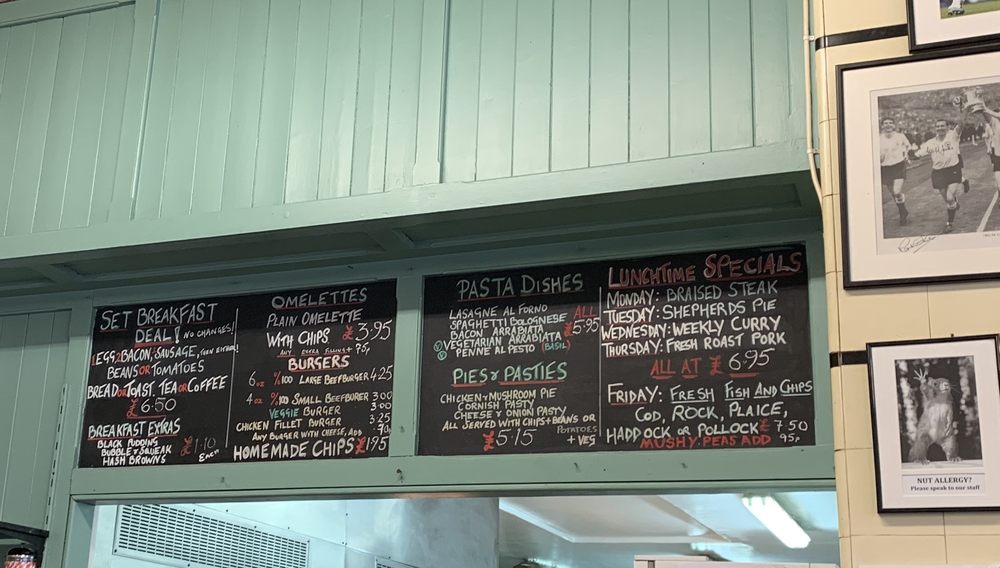 SET BREAKFAST
DEAL! NO CHANGES!
1 EGG 2 BACON, SAUSAGE,
BEANS OR TOMATOES
BREAD OR TOAST, TEA OR COFFEE
£6·50
BREAKFAST EXTRAS
BLACK PUDDING
BUBBLE & SQUEAK
HASH BROWNS
£1·10
EACH
OMELETTES
PLAIN OMELETTE
WITH CHIPS £3.95
ANY EXTRA FILLING + 75p
BURGERS
6 oz %100 LARGE BEEFBURGER 4.25
4 oz %100 SMALL BEEFBURER 3.00
VEGGIE BURGER 3.00
CHICKEN FILLET BURGER 3.25
ANY BURGER WITH CHEESE, ADD 70p
HOMEMADE CHIPS £1.95
PASTA DISHES
LASAGNE AL FORNO
SPAGHETTI BOLOGNESE
BACON ARRABIATA
V VEGETARIAN ARRABIATA
V PENNE AL PESTO (BASIL)
ALL
£5.95
PIES & PASTIES
CHICKEN & MUSHROOM PIE
CORNISH PASTY
CHEESE & ONION PASTY
ALL SERVED WITH CHIPS + BEANS OR
£5.15 POTATOES
+ VEG
LUNCHTIME SPECIALS
MONDAY: BRAISED STEAK
TUESDAY: SHEPHERDS PIE
WEDNESDAY: WEEKLY CURRY
THURSDAY: FRESH ROAST PORK
ALL AT £6.95
FRIDAY: FRESH FISH AND CHIPS
COD, ROCK, PLAICE,
HADDOCK OR POLLOCK £7.50
MUSHY PEAS ADD 95p
NUT ALLERGY?
Please speak to our staff